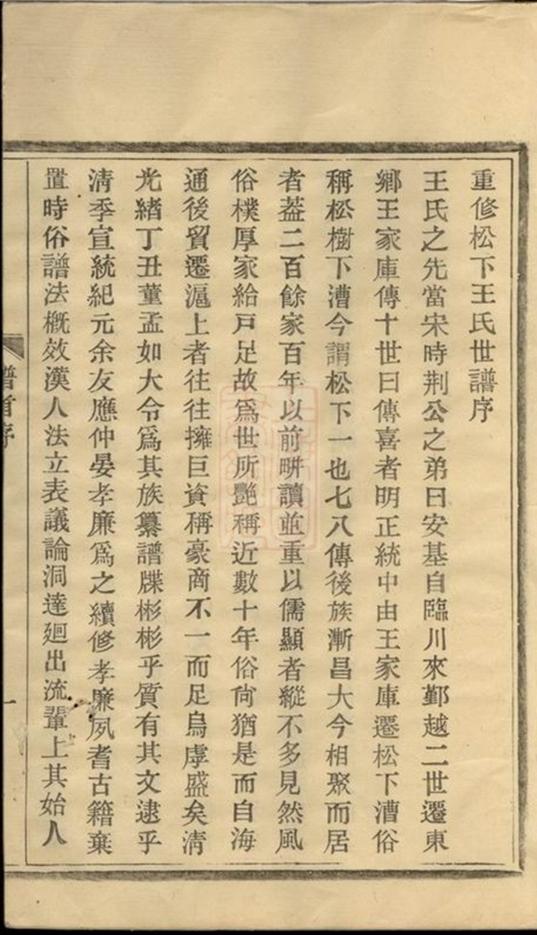 重修松下王氏世譜序
王氏之先當宋時荆公之弟曰安基自臨川來鄞越二世遷東
鄉王家庫傳十世曰傳喜者明正統中由王家庫遷松下漕俗
稱松樹下漕今謂松下一也七八傳後族漸昌大今相聚而居
者葢二百餘家百年以前畊讀並重以儒顯者縱不多見然風
俗樸厚家給戸足故爲世所艷稱近數十年俗尙猶是而自海
通後貿遷滬上者往往擁巨資稱豪商不一而足烏虖盛矣清
光緒丁丑董孟如大令爲其族纂譜牒彬彬乎質有其文逮乎
清季宣統紀元余友應仲晏孝廉爲之續修孝廉夙耆古籍棄
置時俗譜法概效漢人法立表議論洞達迥出流輩上其始人
譜首序
一